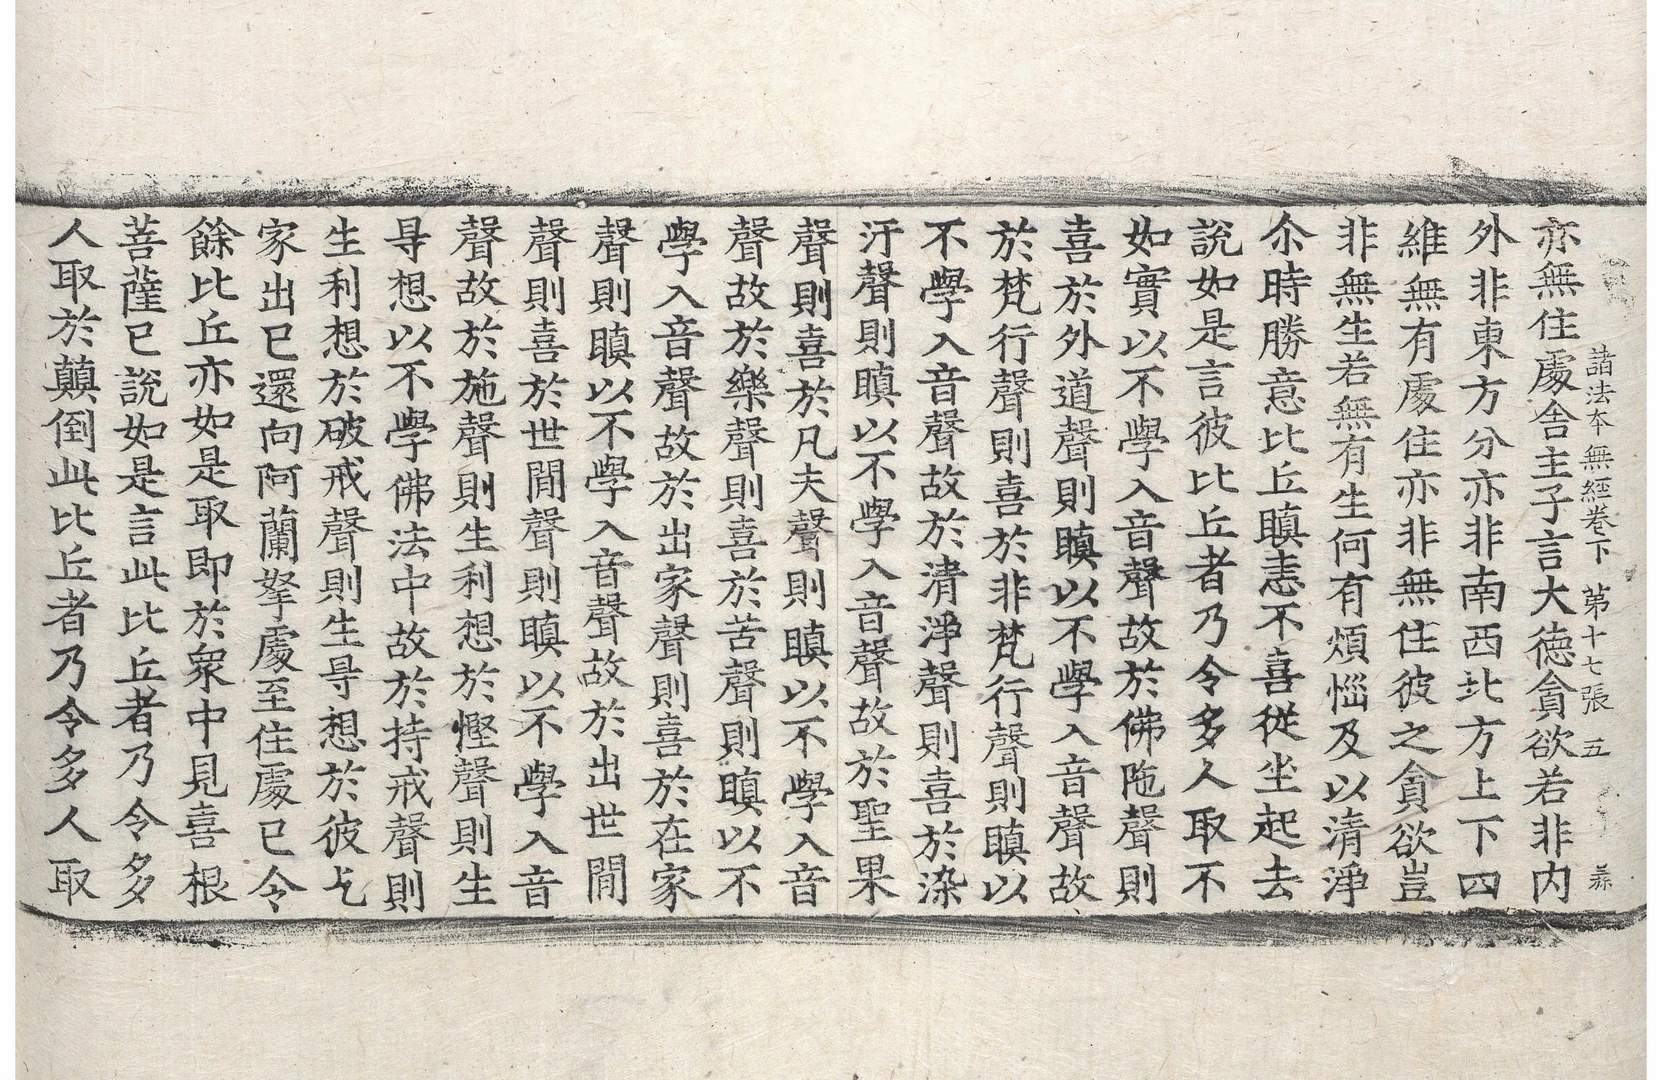 諸法本無經卷下　第十七張　五
亦無住處舍主子言大德貪欲若非內
外非東方分亦非南西北方上下四
維無有處住亦非無住彼之貪欲豈
非無生若無有生何有煩惱及以清淨
尒時勝意比丘瞋恚不喜從坐起去
說如是言彼比丘者乃令多人取不
如實以不學入音聲故於佛陁聲則
喜於外道聲則瞋以不學入音聲故
於梵行聲則喜於非梵行聲則瞋以
不學入音聲故於清淨聲則喜於染
汙聲則瞋以不學入音聲故於聖果
聲則喜於凡夫聲則瞋以不學入音
聲故於樂聲則喜於苦聲則瞋以不
學入音聲故於出家聲則喜於在家
聲則瞋以不學入音聲故於出世閒
聲則喜於世閒聲則瞋以不學入音
聲故於施聲則生利想於慳聲則生
㝵想以不學佛法中故於持戒聲則
生利想於破戒聲則生㝵想於彼乞
家出已還向阿蘭拏處至住處已令
餘比丘亦如是取即於衆中見喜根
菩薩已說如是言此比丘者乃令多
人取於顛倒此比丘者乃令多人取